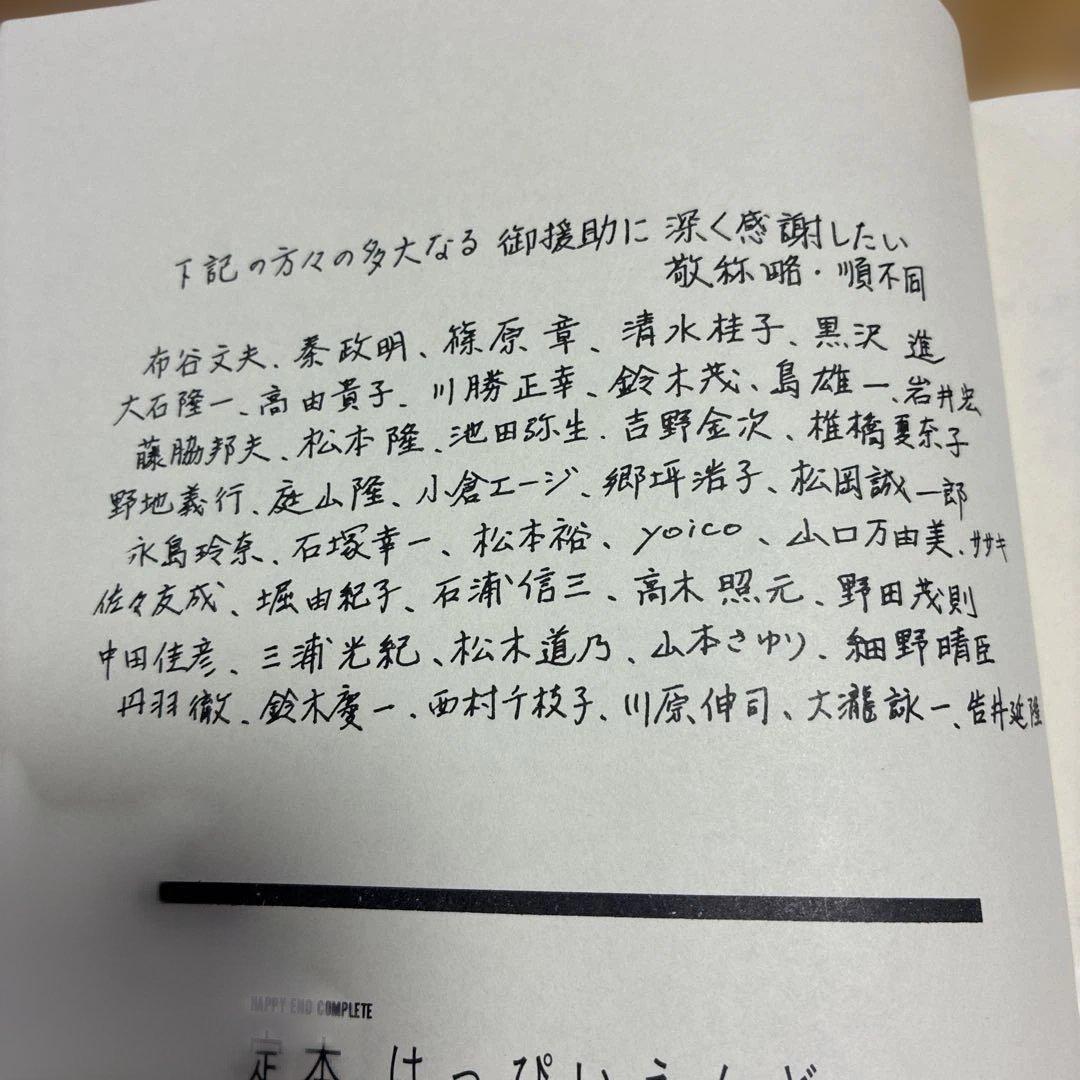 下記の方々の多大なる 御援助に 深く感謝したい
敬称略・順不同
布谷文夫、秦政明、篠原章、清水桂子、黒沢進
大石隆一、高由貴子、川勝正幸、鈴木茂、島雄一、岩井宏
藤脇邦夫、松本隆、池田弥生、吉野金次、椎橋夏奈子
野地義行、庭山隆、小倉エージ、郷坪浩子、松岡誠一郎
永島玲奈、石塚幸一、松本裕、yoico、山口万由美、ササキ
佐々友成、堀由紀子、石浦信三、高木照元、野田茂則
中田佳彦、三浦光紀、松木道乃、山本さゆり、細野晴臣
丹羽徹、鈴木慶一、西村千枝子、川原伸司、大瀧詠一、岩井延隆
HAPPY END COMPLETE
定本 はっぴいえんど